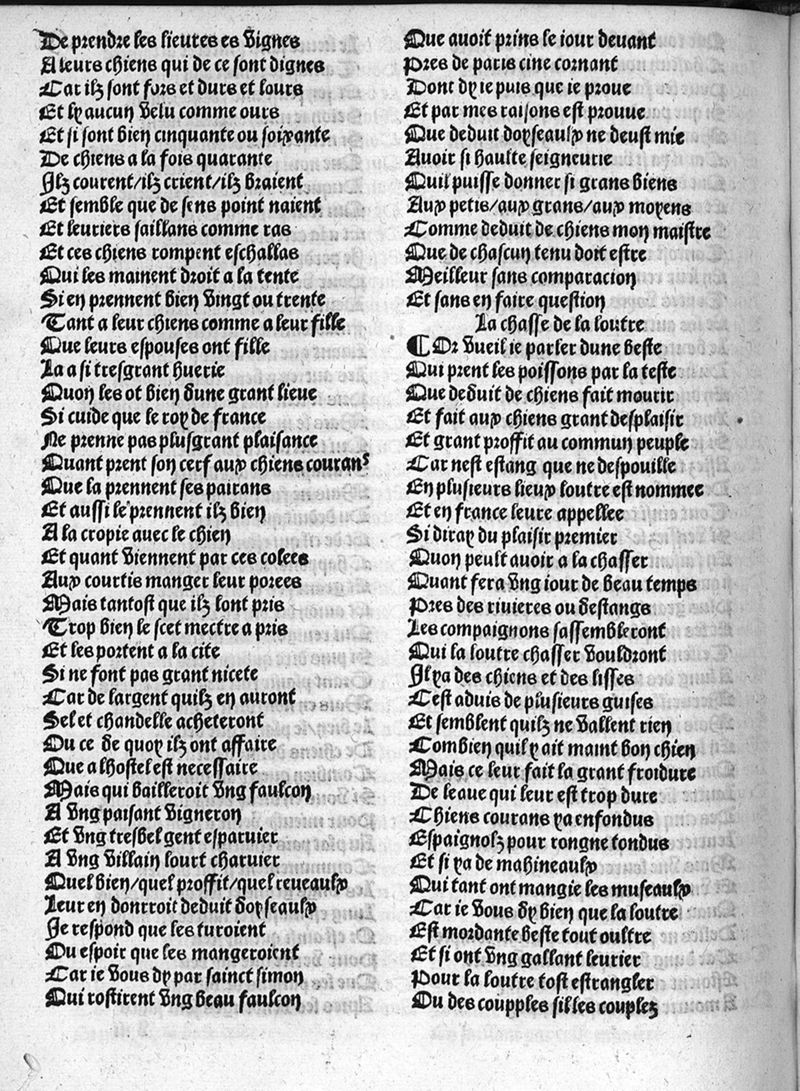 De prendre les lieures es vignes
A leurs chiens qui de ce sont dignes
Car ilz sont fors et durs et lours
Et ly aucun velu comme ours
Et si sont bien cinquante ou soixante
De chiens a la fois quarante
Ilz courent/ilz crient/ilz braient
Et semble que de sens point naient
Et leuriers saillans comme ras
Et ces chiens rompent eschallas
Qui les mainent droit a la tente
Si en prennent bien vingt ou trente
Tant a leur chiens comme a leur fille
Que leurs espouses ont fille
La a si tresgrant huerie
Quon les ot bien dune grant lieue
Si cuide que le roy de france
Ne prenne pas plusgrant plaisance
Quant prent son cerf aux chiens courans
Que la prennent ses pairans
Et aussi le prennent ilz bien
A la cropie auec le chien
Et quant viennent par ces colees
Aux courtis manger leur porees
Mais tantost que ilz lont pris
Trop bien le scet mectre a pris
Et les portent a la cite
Si ne font pas grant nicete
Car de largent quilz en auront
Sel et chandelle acheteront
Ou ce de quoy ilz ont affaire
Que a lhostel est necessaire
Mais qui bailleroit vng faulcon
A vng paisant vigneron
Et vng tresbel gent esparuier
A vng villain lourt charuier
Quel bien/quel proffit/quel reueaulx
Leur en donrroit deduit doyseaulx
Je respond que les turoient
Ou espoir que les mangeroient
Car ie vous dy par sainct simon
Qui rostirent vng beau faulcon
Que auoit prins le iour deuant
Pres de paris cine cornant
Dont dy ie puis que ie proue
Et par mes raisons est prouue
Que deduit doyseaulx ne deust mie
Auoir si haulte seigneurie
Quil puisse donner si grans biens
Aux petis/aux grans/aux moyens
Comme deduit de chiens mon maistre
Que de chascun tenu doit estre
Meilleur sans comparacion
Et sans en faire question
La chasse de la loutre
¶ Or vueil ie parler dune beste
Qui prent les poissons par la teste
Que deduit de chiens fait mourir
Et fait aux chiens grant desplaisir
Et grant proffit au commun peuple
Car nest estang que ne despouille
En plusieurs lieux loutre est nommee
Et en france leure appellee
Si diray du plaisir premier
Quon peult auoir a la chasser
Quant fera vng iour de beau temps
Pres des riuieres ou destangs
Les compaignons sassembleront
Qui la loutre chasser vouldront
Il ya des chiens et des lisses
Cest aduis de plusieurs guises
Et semblent quilz ne vallent rien
Combien quil y ait maint bon chien
Mais ce leur fait la grant froidure
De leaue qui leur est trop dure
Chiens courans ya enfondus
Espaignolz pour rongne tondus
Et si ya de mahineaulx
Qui tant ont mangie les museaulx
Car ie vous dy bien que la loutre
Est mordante beste tout oultre
Et si ont vng gallant leurier
Pour la loutre tost estrangler
Ou des coupples silles couplez